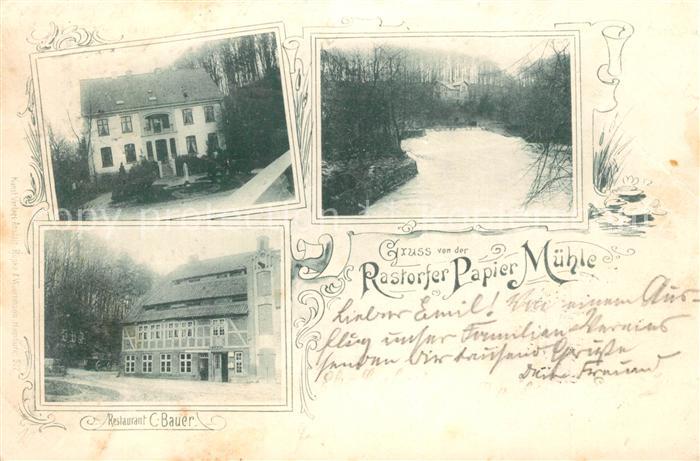 Gruss von der
Rastorfer Papier Mühle
Lieber Emil! Von einem Aus-
flug unser Familien-Vereins
senden Dir tausend Grüße
Deine Freund
Restaurant C. Bauer.